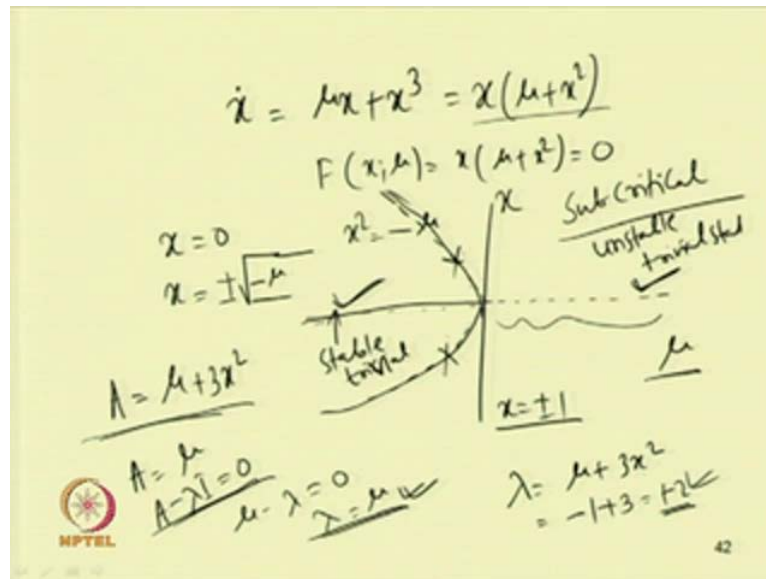 ẋ = μx + x³ = x(μ + x²)
F(x; μ) = x(μ + x²) = 0
x = 0
x² = -μ
x
Subcritical
x = ±√-μ
unstable
trivial
stable
trivial
μ
A = μ + 3x²
x = ±1
A = μ
A - λI = 0
μ - λ = 0
λ = μ
λ = μ + 3x²
= -1 + 3 = +2
NPTEL
42